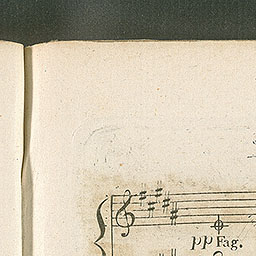 pp Fag.